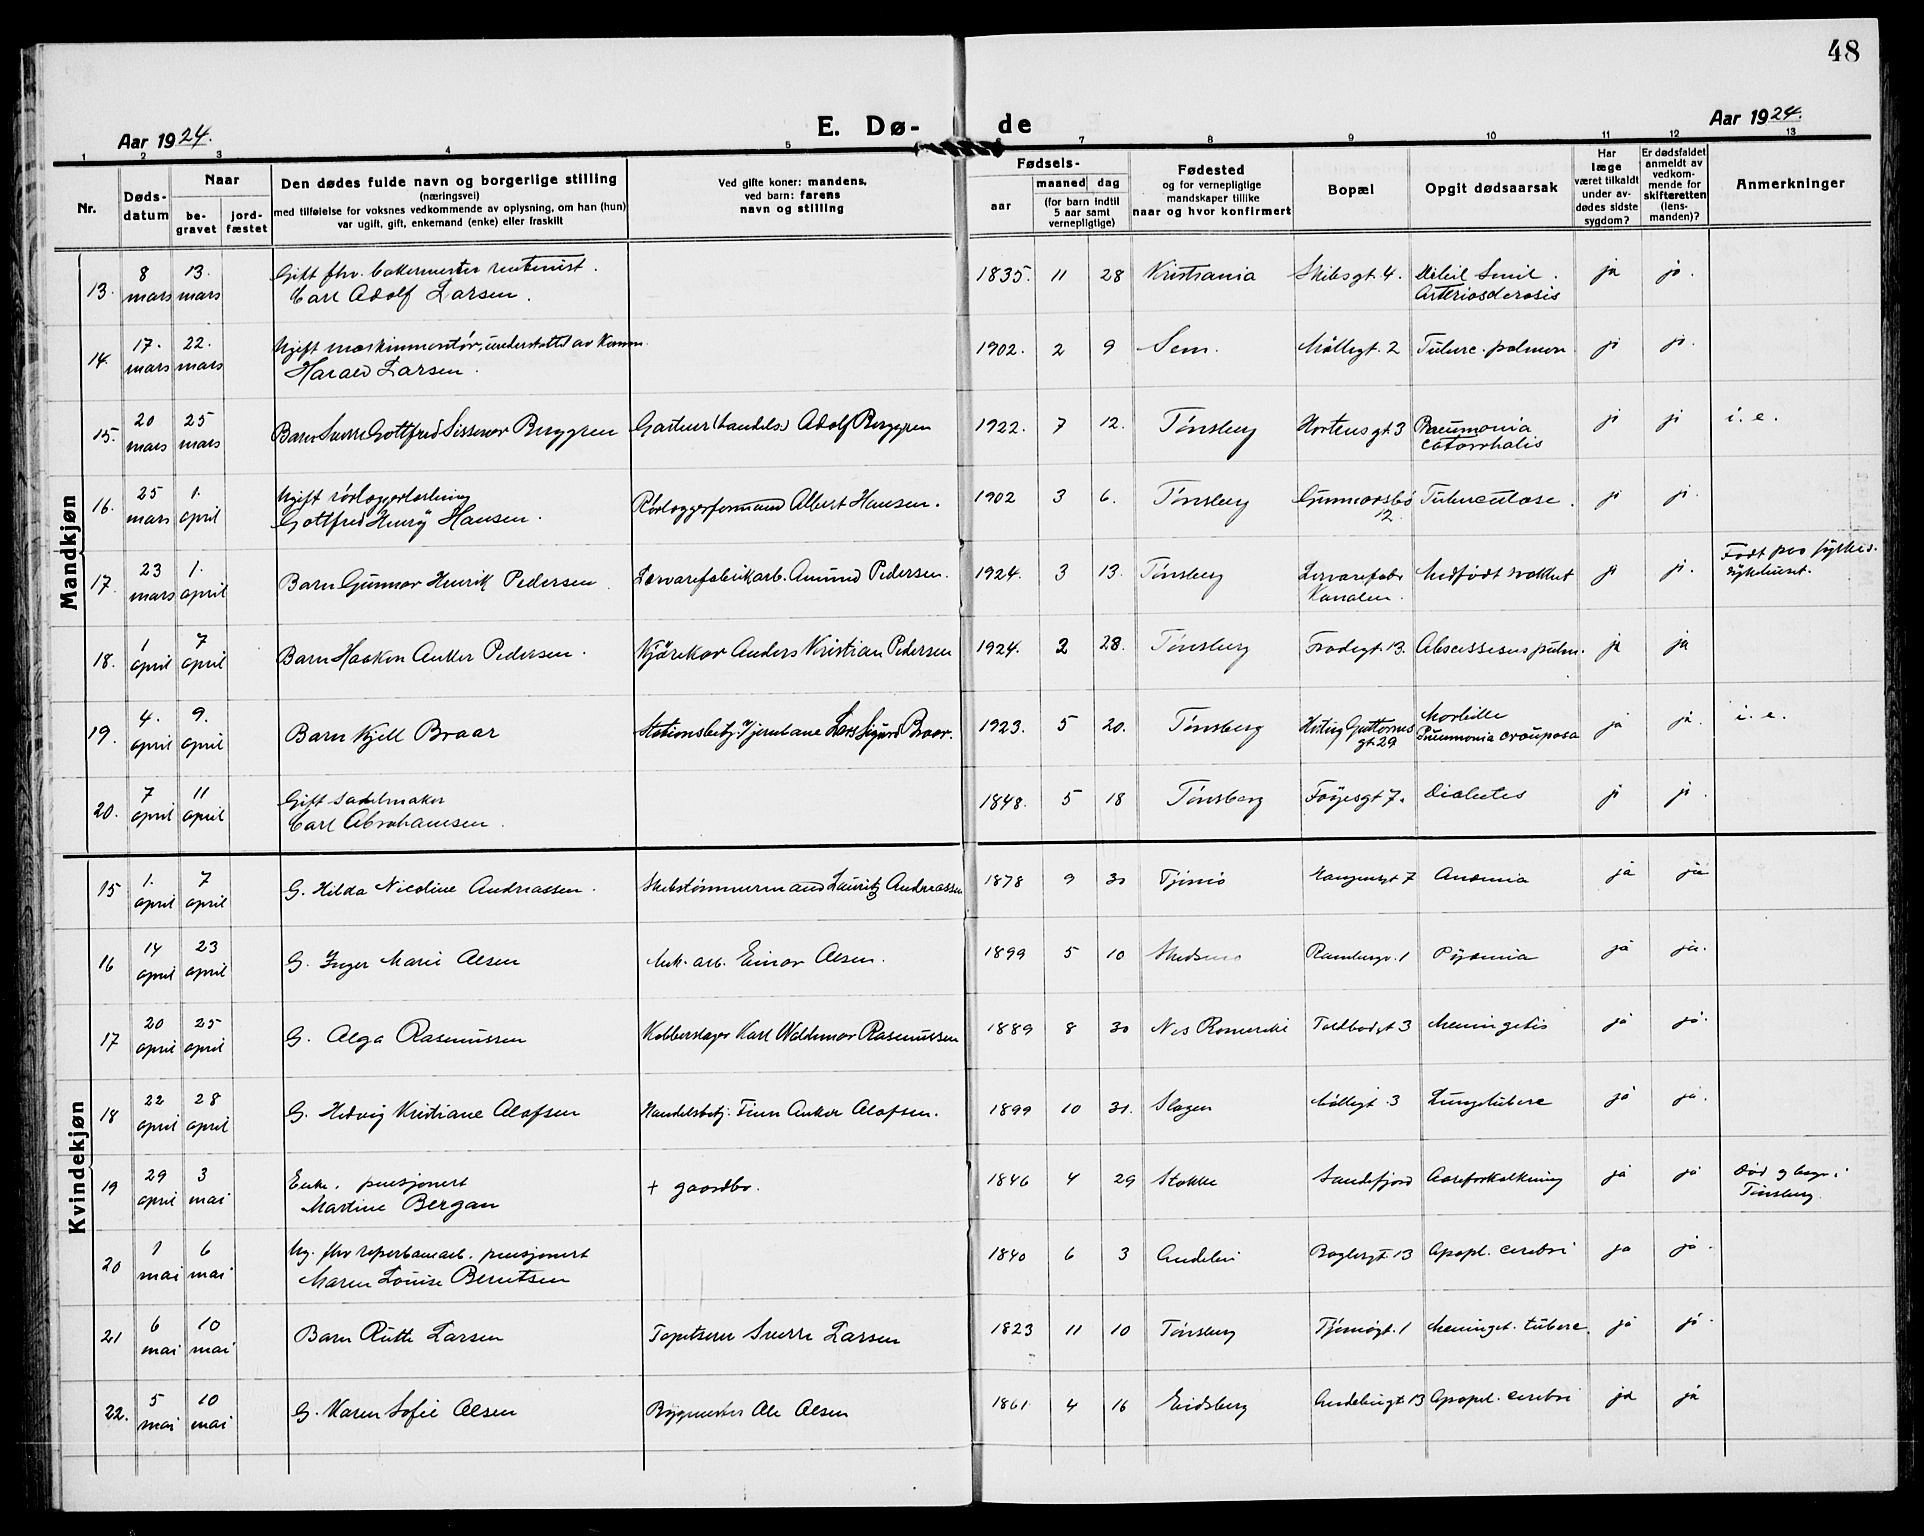 48
Aar 1924.
E. Dø-
de
Aar 1924.
1 2 3 4 5 7 8 9 10 11 12 13
Nr.
Døds-
datum
Naar
be-
gravet
jord-
fæstet
Den dødes fulde navn og borgerlige stilling
(næringsvei)
med tilføielse for voksnes vedkommende av oplysning, om han (hun)
var ugift, gift, enkemand (enke) eller fraskilt
Ved gifte koner: mandens,
ved barn: farens
navn og stilling
Fødsels-
aar
maaned dag
(for barn indtil
5 aar samt
vernepligtige)
Fødested
og for vernepligtige
mandskaper tillike
naar og hvor konfirmert
Bopæl
Opgit dødsaarsak
Har
læge
været tilkaldt
under av-
dødes sidste
sygdom?
Er dødsfaldet
anmeldt av
vedkom-
mende for
skifteretten
(lens-
manden)?
Anmerkninger
Mandkjøn
13. 8 mars 13. mars Gift fhv. bakermester rentenist.
Carl Adolf Larsen. 1835. 11 28 Kristiania Skibsgt 4. Debil Senil.
Arteriosclerosis ja ja.
14. 17. mars 22. mars Ugift maskinmontør, understøttet av Komm.
Harald Larsen. 1902. 2 9 Sem. Møllegt. 2 Tuberc. pulmon ja ja.
15. 20 mars 25 mars Barn Sverre Gottfred Sissener Berggren Gartner (handels.) Adolf Berggren 1922. 7 12. Tønsberg Hortensgt 3 Pneumonia
catarrhalis ja ja i. e.
16. 25 mars 1. april Ugift rørlæggerlærling
Gottfred Henry Hansen. Rørlæggerformand Albert Hansen. 1902 3 6. Tønsberg Gunnarsbø
12. Tuberculose. ja ja.
17. 23 mars 1. april Barn Gunnar Henrik Pedersen Lervarefabrikarb. Amund Pedersen. 1924. 3 13. Tønsberg Lervarefabr
Kanalen. Medfødt svakhet ja ja. Født paa fylkes-
sykehuset.
18. 1 april 7 april Barn Haakon Anker Pedersen. Kjørekar Anders Kristian Pedersen 1924. 2 28. Tønsberg Frodegt. 13. Abscessus pulm. ja ja
19. 4. april 9. april Barn Kjell Braar Stationsbetj. v/Jernbane Lars Sigurd Braar. 1923. 5 20. Tønsberg Hertug Guttorms
gt. 29 Morbille
Pneumonia crouposa ja ja. i. e.
20. 7 april 11 april Gift sadelmaker
Carl Abrahamsen. 1848. 5 18 Tønsberg Føyesgt 7. Diabetes ja ja.
Kvindekjøn
15 1. april 7 april G. Hilda Nicoline Andreassen. Skibstømmermand Lauritz Andreassen 1878 9 30 Tjømø 7 Anæmia ja ja
16 14 april 23 april G. Inger Marie Olsen Mek. arb. Einar Olsen. 1899 5 10 Skedsmo Rambergv. 1 Pyæmia ja ja.
17 20 april 25 april G. Olga Rasmussen Kobberslager Karl Waldemar Rasmussen 1889 8 30 Nes Romerike Toldbodgt 3 Meningetis ja ja.
18 22 april 28 april G. Hedvig Kristiane Olafsen Handelsbetj. Finn Anker Olafsen. 1899 10 31. Slagen Møllegt. 3 Lungetuberc ja ja.
19 29 april 3 mai Enke. pensjonert
Martine Bergan + gaardbr. 1846 4 29 Stokke Sandefjord Aareforkalkning ja ja Død og begr. i
Tønsberg.
20 1 mai 6 mai Ug. fhv reperbanearb. pensjonert
Maren Louise Berntsen 1840 6 3 Andebu Baglergt. 13 Apopl. cerebri ja ja.
21 6 mai 10 mai Barn Ruth Larsen Tapetserer Sverre Larsen 1823 11 10 Tønsberg Tjømøgt. 1 Meninget. tuberc. ja ja.
22. 5 mai 10 mai G. Karen Sofie Olsen Bygmester Ole Olsen 1861. 4 16 Eidsberg Andebugt. 13 Apopl. cerebri ja ja